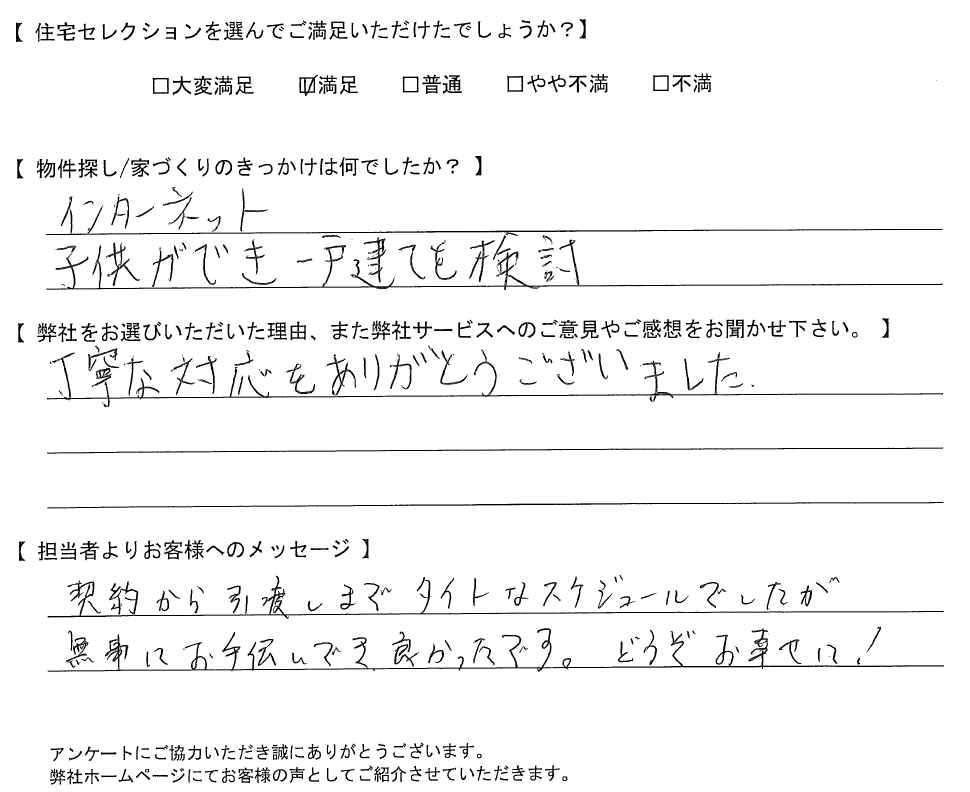 【 住宅セレクションを選んでご満足いただけたでしょうか?】
□大変満足 ☑満足 □普通 □やや不満 □不満
【 物件探し/家づくりのきっかけは何でしたか? 】
インターネット
子供ができ一戸建てを検討
【 弊社をお選びいただいた理由、また弊社サービスへのご意見やご感想をお聞かせ下さい。 】
丁寧な対応をありがとうございました.
【 担当者よりお客様へのメッセージ 】
契約から引渡しまでタイトなスケジュールでしたが
無事にお手伝いでき良かったです。どうぞお幸せに!
アンケートにご協力いただき誠にありがとうございます。
弊社ホームページにてお客様の声としてご紹介させていただきます。